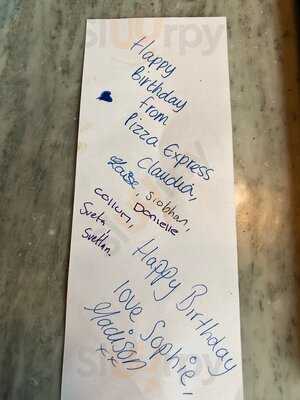 Happy
Birthday
from
Pizza Express
Claudia,
Louise, Siobhan,
Callum, Danielle
Sveta,
Svetlan.
Happy Birthday
love Sophie,
Madison
xx